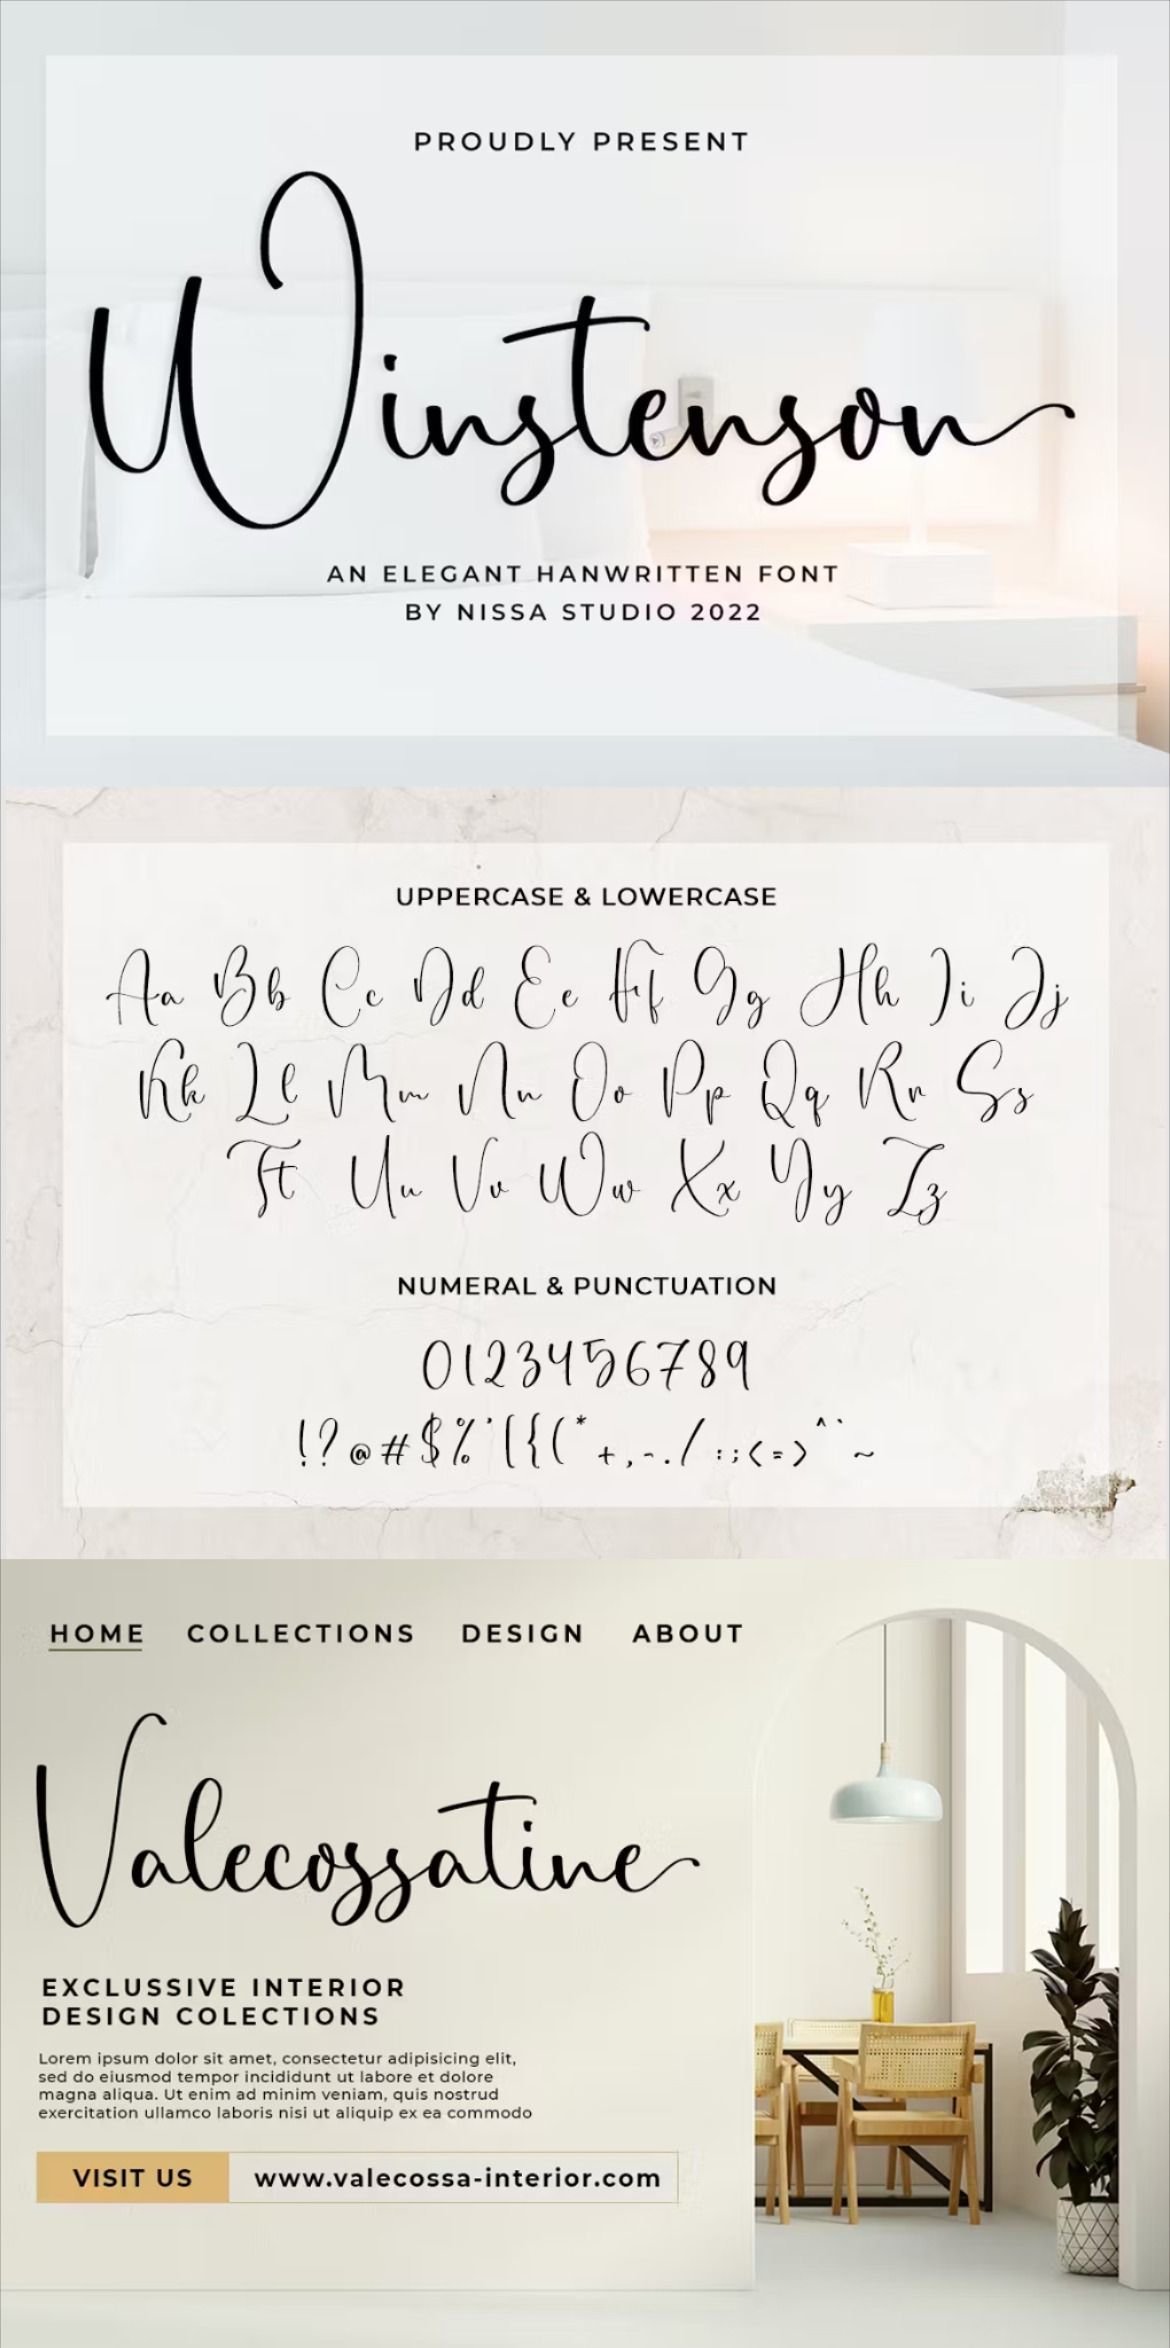 PROUDLY PRESENT
Winstenson
AN ELEGANT HANWRITTEN FONT
BY NISSA STUDIO 2022
UPPERCASE & LOWERCASE
Aa Bb Cc Dd Ee Ff Gg Hh Ii Jj
Kk Ll Mm Nn Oo Pp Qq Rr Ss
Tt Uu Vv Ww Xx Yy Zz
NUMERAL & PUNCTUATION
0123456789
!?@#$%'[{(*+,-./:;<=>^`~
HOME COLLECTIONS DESIGN ABOUT
Valecossatine
EXCLUSSIVE INTERIOR
DESIGN COLECTIONS
Lorem ipsum dolor sit amet, consectetur adipisicing elit,
sed do eiusmod tempor incididunt ut labore et dolore
magna aliqua. Ut enim ad minim veniam, quis nostrud
exercitation ullamco laboris nisi ut aliquip ex ea commodo
VISIT US www.valecossa-interior.com